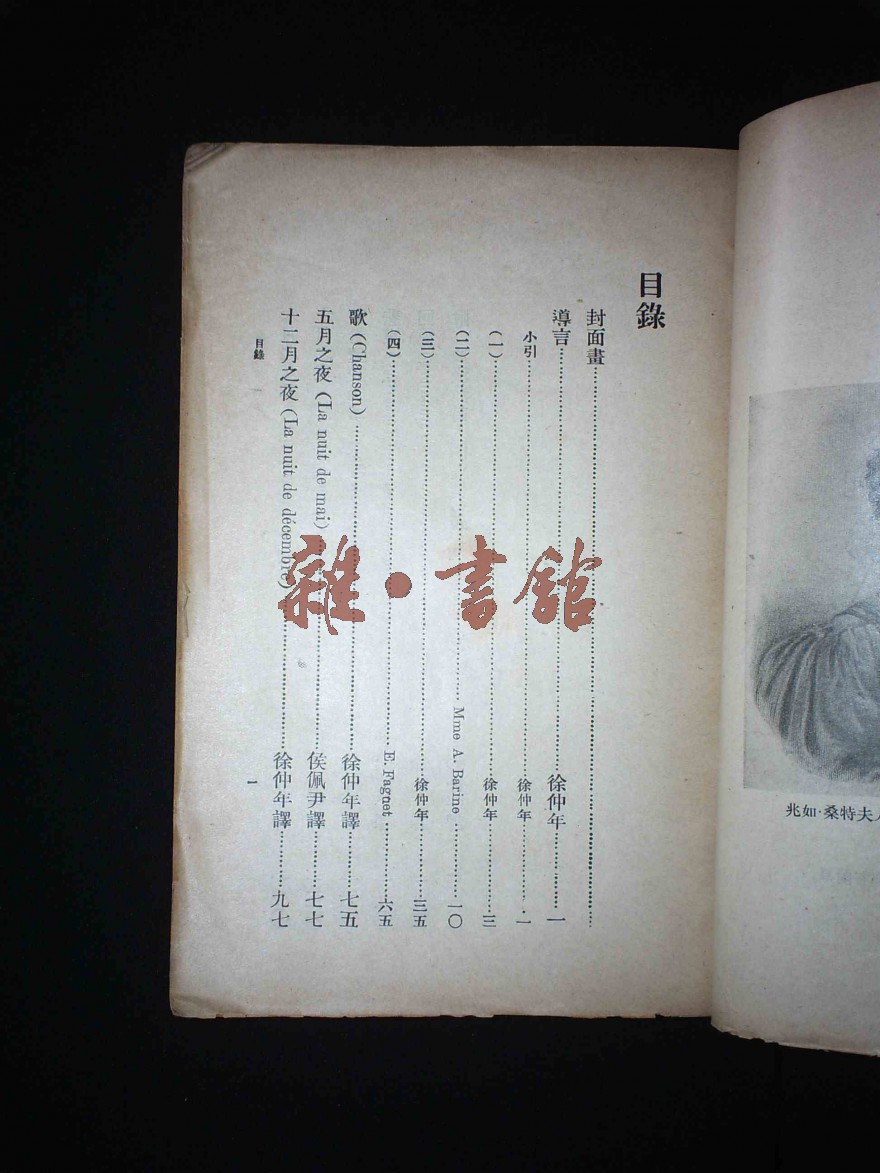 目錄
封面畫
導言 徐仲年 一
小引 徐仲年 一
(一) 徐仲年 三
(二) Mme A. Barine 一〇
(三) 徐仲年 三五
(四) E. Fagnet 六五
歌 (Chanson) 徐仲年譯 七五
五月之夜 (La nuit de mai) 侯佩尹譯 七七
十二月之夜 (La nuit de décembre) 徐仲年譯 九七
目錄 一
雜·書館
兆如·桑特夫